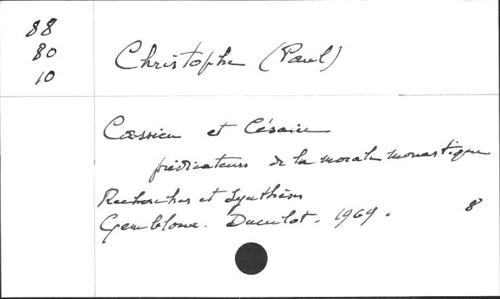 88
80
10
Christophe (Paul)
Cassien et Césaire
prédicateurs de la morale monastique
Recherches et synthèses
Gembloux. Duculot. 1969. 8°